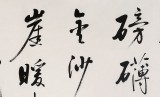 磅礴
金沙
崖暖